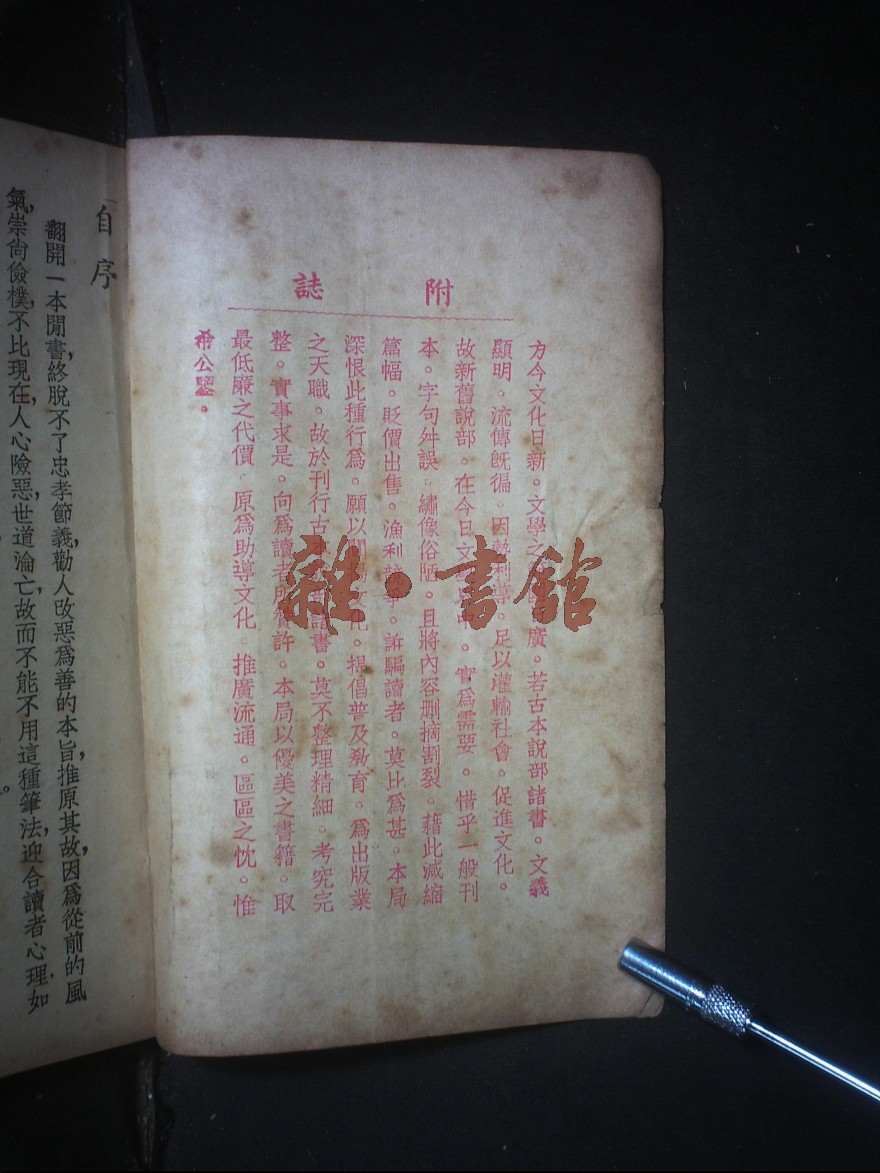 附誌
方今文化日新。文學之廣。若古本說部諸書。文義
顯明。流傳旣徧。因利足以灌輸社會。促進文化。
故新舊說部。在今日文。實爲需要。惜乎一般刊
本。字句舛誤。繡像俗陋。且將內容刪摘割裂。藉此减縮
篇幅。貶價出售。漁利。詐騙讀者。莫比爲甚。本局
深恨此種行爲。願以。提倡普及敎育。爲出版業
之天職。故於刊行古諸書。莫不整理精細。考究完
整。實事求是。向爲讀者許。本局以優美之書籍。取
最低廉之代價。原爲助導文化。推廣流通。區區之忱。惟
希公鑒。
自序
翻開一本閒書,終脫不了忠孝節義,勸人改惡爲善的本旨,推原其故,因爲從前的風
氣,崇尙儉樸,不比現在,人心險惡,世道淪亡,故而不能不用這種筆法,迎合讀者心理,如
雜·書館